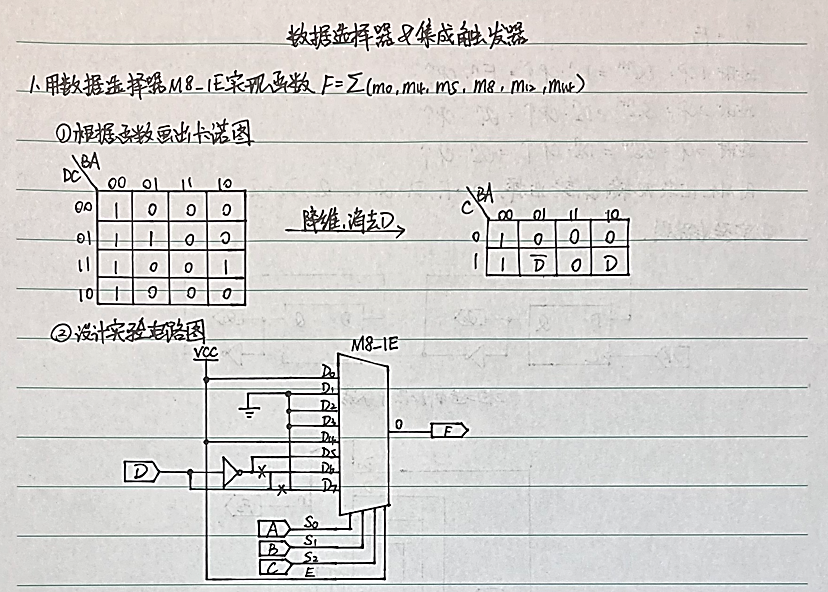 数据选择器&集成触发器
1.用数据选择器M8_1E实现函数 F=∑(m0,m4,m5,m8,m12,m14)
①根据函数画出卡诺图
DC\BA 00 01 11 10
00 1 0 0 0
01 1 1 0 0
11 1 0 0 1
10 1 0 0 0
降维,消去D
C\BA 00 01 11 10
0 1 0 0 0
1 1 D̅ 0 D
②设计实验电路图
VCC
M8_1E
D0
D1
D2
D3
D4
D5
D6
D7
D
O
F
A S0
B S1
C S2
E